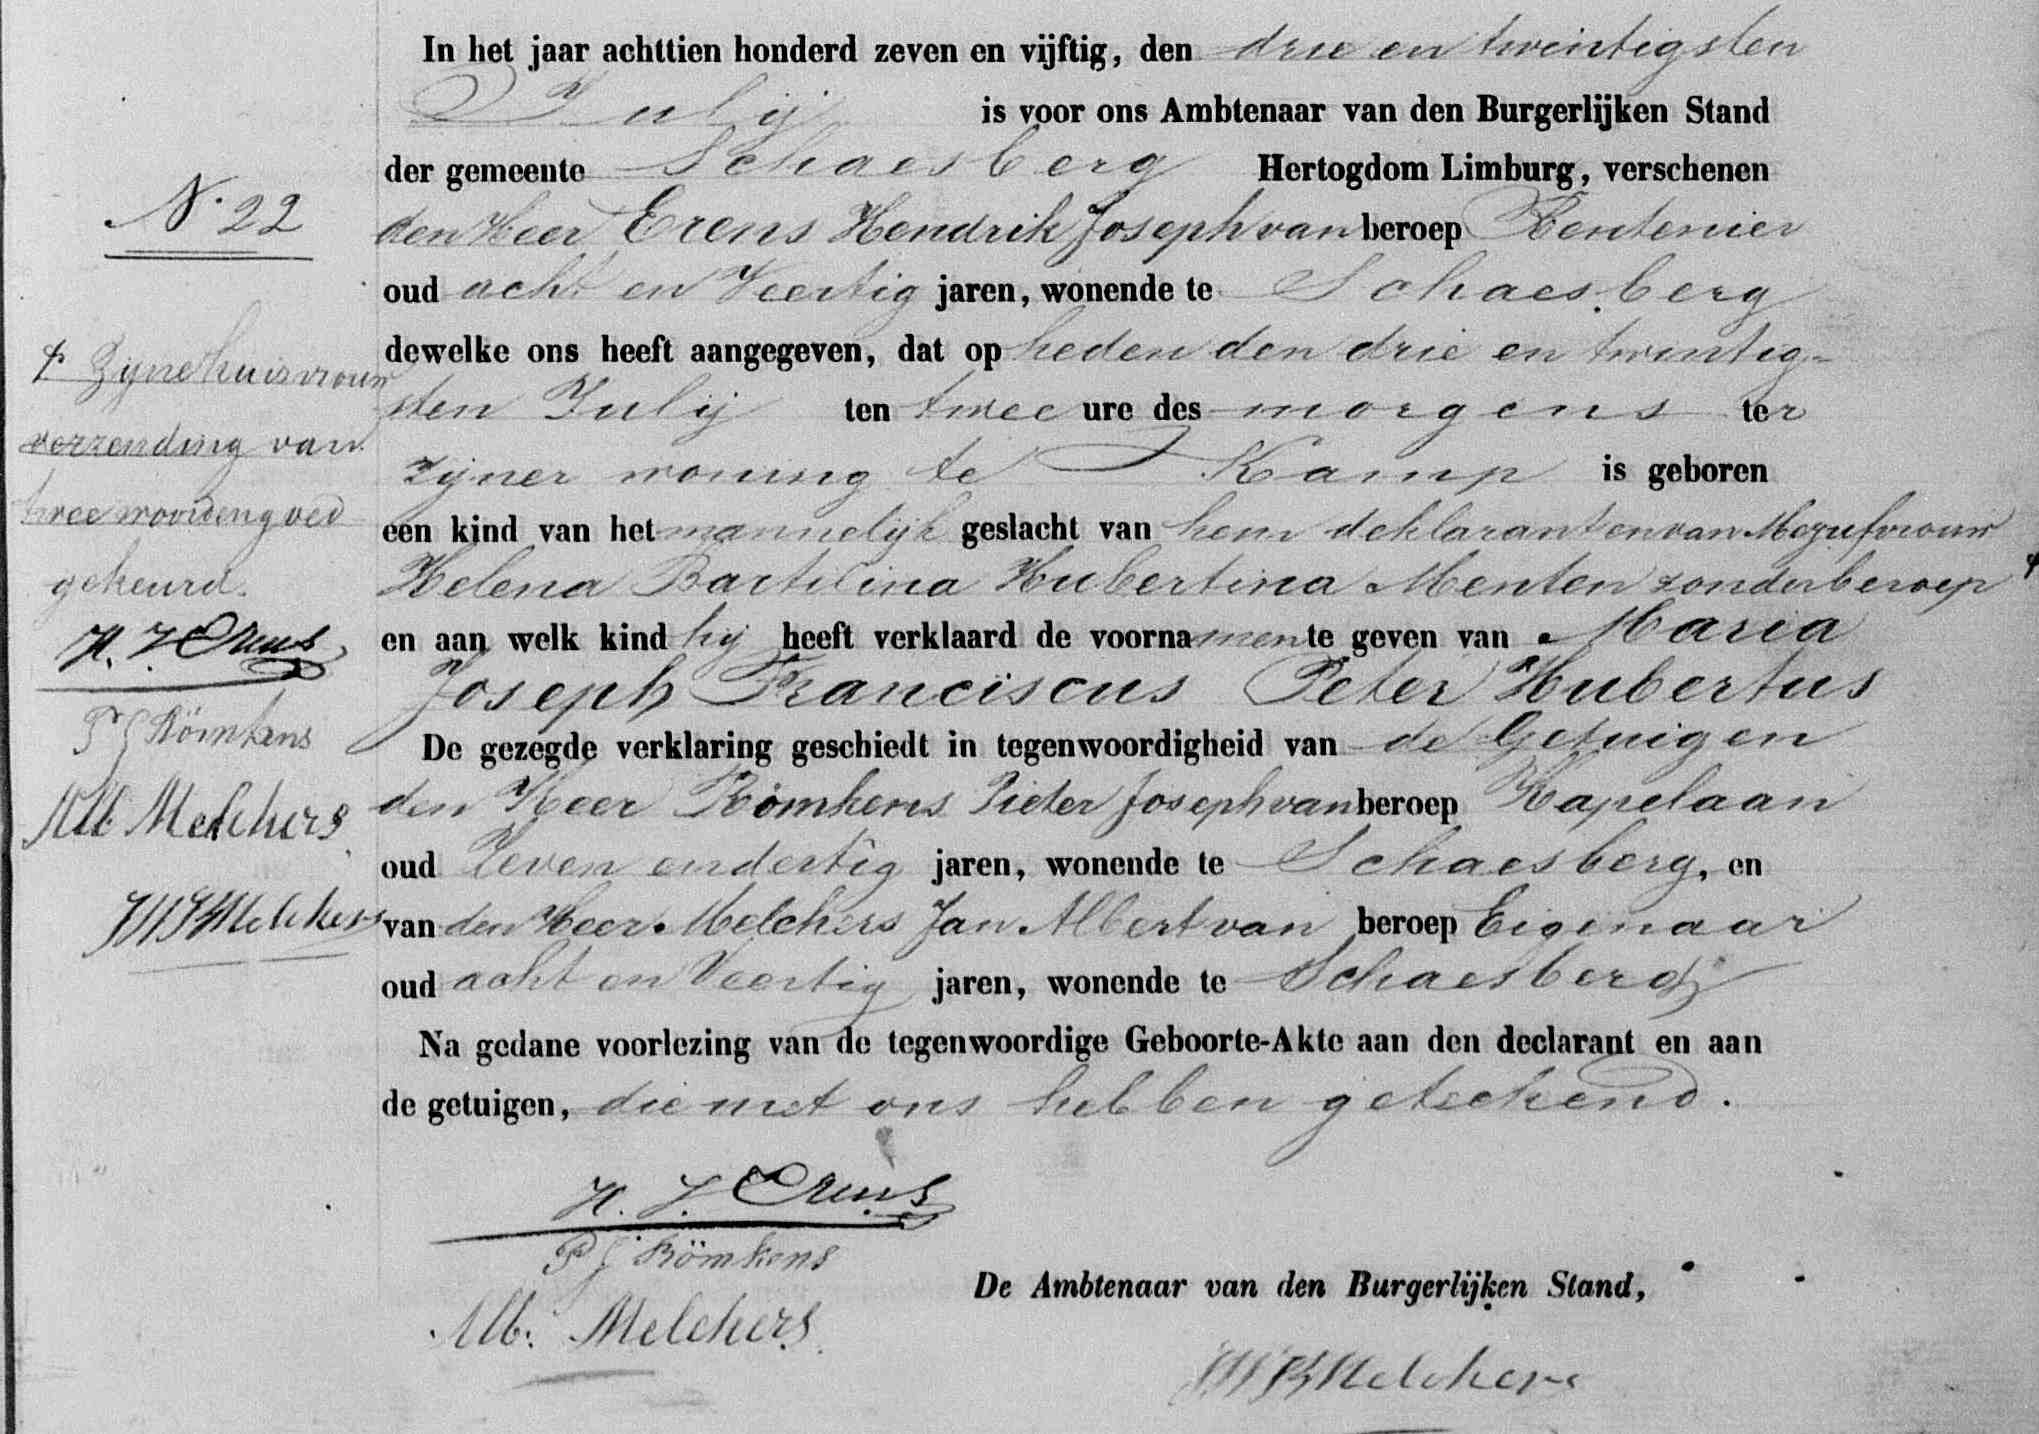 In het jaar achttien honderd zeven en vijftig, den drie en twintigsten
Julij is voor ons Ambtenaar van den Burgerlijken Stand
der gemeente Schaesberg Hertogdom Limburg, verschenen
den Heer Erens Hendrik Joseph van beroep Rentenier
oud acht en Veertig jaren, wonende te Schaesberg
dewelke ons heeft aangegeven, dat op heden den drie en twintig-
sten Julij ten twee ure des morgens ter
zijner woning te Kamp is geboren
een kind van het mannelijk geslacht van hem deklarant en van Mejufvrouw
Helena Hubertina Menten zonder beroep +
en aan welk kind hij heeft verklaard de voornamen te geven van Maria
Joseph Franciscus Peter Hubertus
De gezegde verklaring geschiedt in tegenwoordigheid van de Getuigen
den Heer Römkens Pieter Joseph van beroep Kapelaan
oud Zeven en dertig jaren, wonende te Schaesberg, en
van den Heer Melchers Jan Albert van beroep Eigenaar
oud acht en Veertig jaren, wonende te Schaesberg
Na gedane voorlezing van de tegenwoordige Geboorte-Akte aan den declarant en aan
de getuigen, die met ons hebben geteekend.
H. J. Erens
P J Römkens
Alb. Melchers
De Ambtenaar van den Burgerlijken Stand,
Melchers
N. 22
+ Zijne huisvrouw
verzending van
twee woorden goed
gekeurd.
H. J. Erens
P J Römkens
Alb Melchers
Melchers